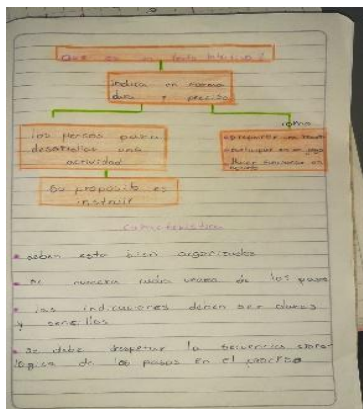 Que es un texto
indica en manera
clara y precisa
los pasos para
desarrollar una
actividad
como
Su proposito es
instruir
Caracteristica
• deben esta bien organizados
• se numera cada unana de los paso
• las indicaciones deben ser claras
y sencillas
• se debe respetar la secuencia crono
lógica de los pasos en el proceso